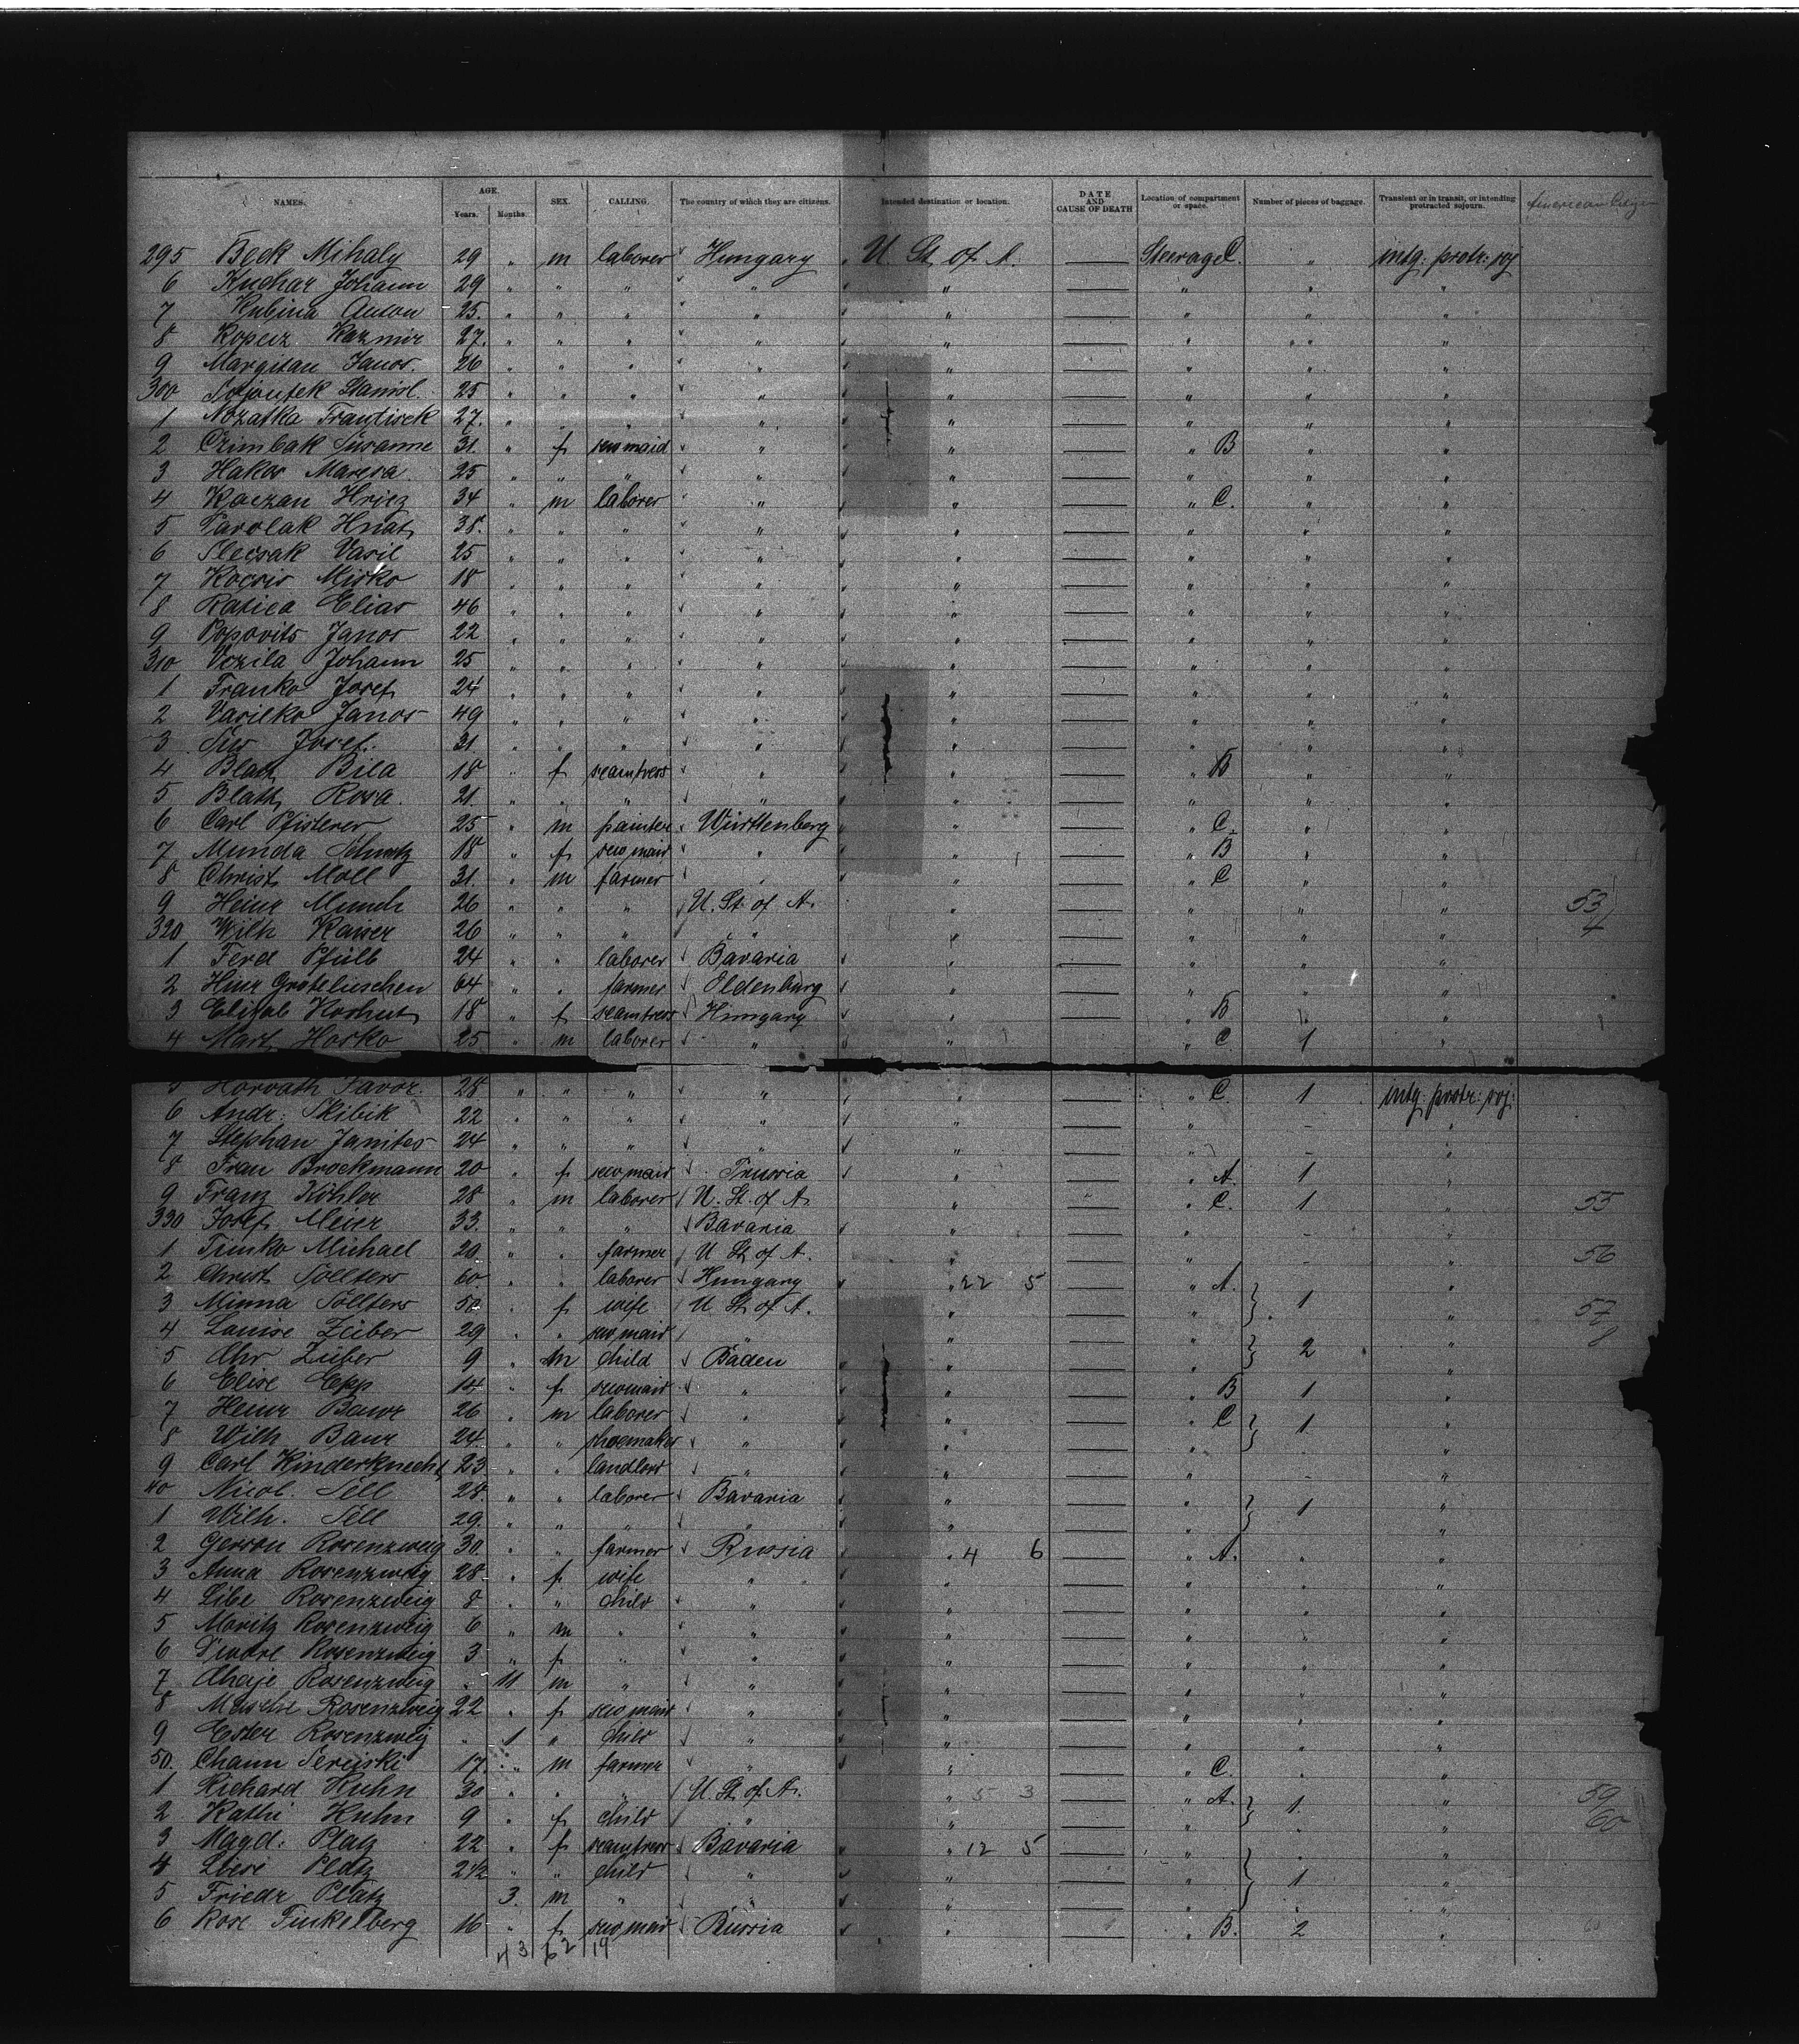 NAMES. AGE. Years. Months. SEX. CALLING. The country of which they are citizens. Intended destination or location. DATE AND CAUSE OF DEATH Location of compartment or space. Number of pieces of baggage. Transient or in transit, or intending protracted sojourn. American
295 Beck Mihaly 29 " m laborer Hungary U. St. of A. Steerage C. " intg. protr: soj
6 Kuchar Johann 29 " " " " " " " "
7 Kubina Anton 25. " " " " " " " "
8 Kopecz Kazmir 27. " " " " " " " "
9 Margitan Janos. 26 " " " " " " " "
300 Stanisl. 25 " " " " " " " "
1 Frantisek 27. " " " " " " " "
2 Czimbak Susanne 31. " f sew maid " " " B " "
3 Hakos 25 " " " " " " " "
4 Kaczan Hricz 34 " m laborer " " " C. " "
5 Tarolak Hnat 38. " " " " " " " "
6 Slecsak Vasil 25 " " " " " " " "
7 Kocsis Misko 18 " " " " " " " "
8 Elias 46 " " " " " " " "
9 Popovits Janos 22 " " " " " " " "
310 Vozila Johann 25 " " " " " " " "
1 Franko Josef 24 " " " " " " " "
2 Vasilko Janos 49 " " " " " " " "
3 Josef. 31 " " " " " " " "
4 Blath Bila 18 " f seamtress " " " B " "
5 Blath Rosa. 21. " " " " " " " "
6 Carl Pfisterer 25 " m painter Württenberg " " C. " "
7 Munda 18 " f sew maid " " " B " "
8 Christ. Moll 31. " m farmer " " " C " "
9 Heinr Munch 26 " " " U. St. of A. " " " " 53
320 Wilh Kaiser 26 " " " " " " " " 4
1 Ferd Pfülb 24 " " laborer Bavaria " " " "
2 Hinr Grotelüschen 64 " " farmer Oldenburg " " " "
3 Elisab Koshut 18 " f seamtress Hungary " " B " "
4 Mart. Horko 25 " m laborer " " " C 1 "
5 Horvath 28 " " " " " " C. 1 intg: protr: soj:
6 Andr: Skibik 22 " " " " " " " - "
7 Stephan Janites 24 " " " " " " " - "
8 Frau Brockmann 20 " f sew maid Prussia " " A. 1 "
9 Franz Köhler 28 " m laborer U. St. of A. " " C. 1 " 55
330 Josef Meier 33. " " " Bavaria " " - "
1 Timko Michael 20 " " farmer U St. of A. " " - " 56
2 Christ Söllters 60 " " laborer Hungary " 22 5 " A. "
3 Minna Söllters 50 " f wife U St. of A. " " } 1 " 57
4 Louise Zuber 29 " " sew maid " " " " 8
5 Chr Zuber 9 " m child Baden " " } 2 "
6 Elise Epp 14 " f sewmaid " " " B 1 "
7 Heinr Baur 26 " m laborer " " " C } 1 "
8 Wilh Baur 24. " " shoemaker " " " "
9 Carl Kinderknecht 23 " " landlord " " " - "
40 Nicol. Sell 28. " " laborer Bavaria " " } 1 "
1 Wilh. Sell 29. " " " " " " "
2 Gerson Rosenzweig 30. " " farmer Russia " 4 6 " A. " "
3 Anna Rosenzweig 28 " f wife " " " " "
4 Libe Rosenzweig 8 " " child " " " " "
5 Moritz Rosenzweig 6 " m " " " " " "
6 Rosenzweig 3 " f " " " " " "
7 Chaje Rosenzweig " 11 m " " " " " "
8 Rosenzweig 22 " f sew maid " " " " "
9 Ester Rosenzweig " 1 " child " " " " "
50. Chaim Sereiski 17. " m farmer " " " C. " "
1 Richard Kuhn 30 " " " U. St. of A. " 5 3 " A. } 1. " 59
2 Kathi Kuhn 9 " f child " " " " 60
3 Magd: Platz 22 " f seamtress Bavaria " 12 5 " "
4 Platz 2 1/2 " " child " " " } 1 "
5 Friedr Platz 3. m " " " " "
6 Rose Finkelberg 16 " f sew maid Russia " " B. 2 "
43 62 19